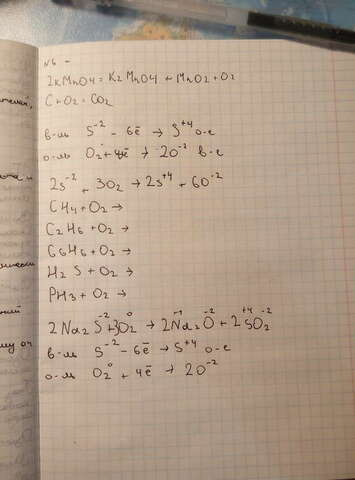 N6 -
2KMnO4 = K2MnO4 + MnO2 + O2
C + O2 = CO2
в-ль S⁻² - 6ē → S⁺⁴ о-е
о-ль O₂ + 4ē → 2O⁻² в-е
2S⁻² + 3O2 → 2S⁺⁴ + 6O⁻²
CH4 + O2 →
C2H6 + O2 →
C6H6 + O2 →
H2S + O2 →
PH3 + O2 →
2Na2S⁻² + 3O2⁰ → 2Na2⁻¹O⁻² + 2S⁺⁴O2⁻²
в-ль S⁻² - 6ē → S⁺⁴ о-е
о-ль O2⁰ + 4ē → 2O⁻²